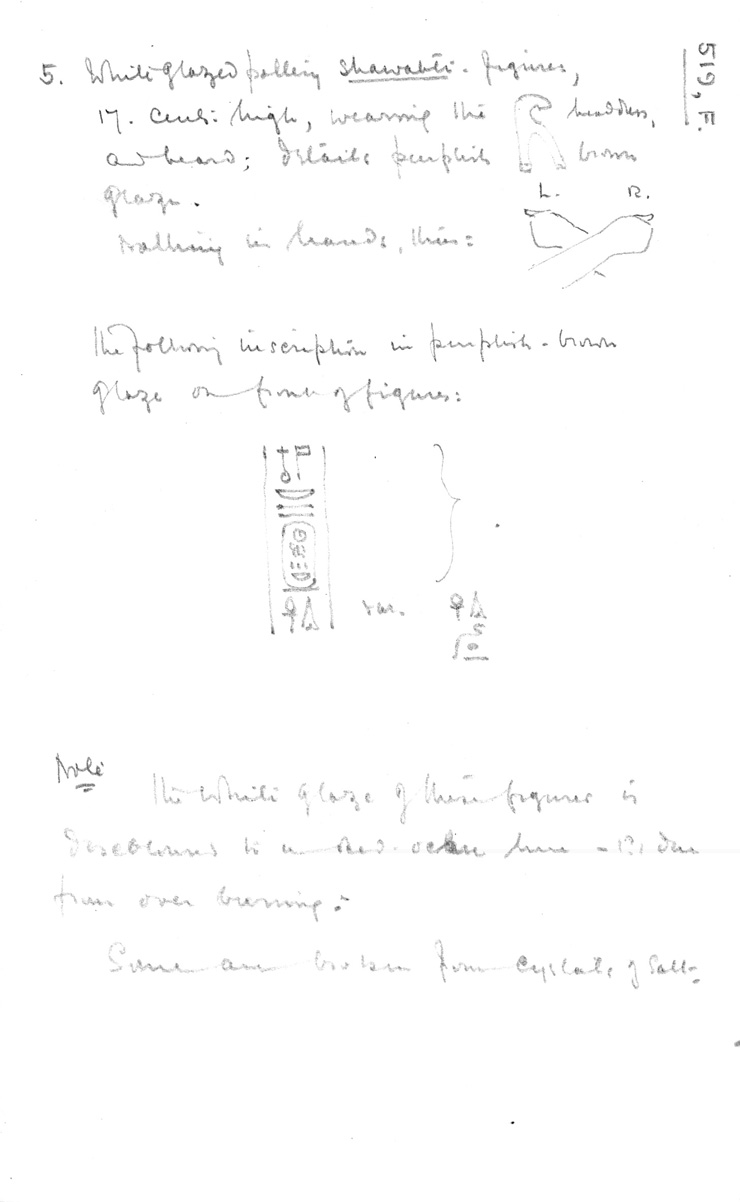 519, F.
5. White glazed pottery shawabti-figures,
17. cents: high, wearing the headdress,
and beard; details purplish brown
glaze.
L. R.
Nothing in hands, thus:
The following inscription in purplish-brown
glaze on front of figures:
var.
Note
The white glaze of these figures is
discoloured to a red-ochre hue - (?) due
from over burning.
Some are broken from crystals of salt.